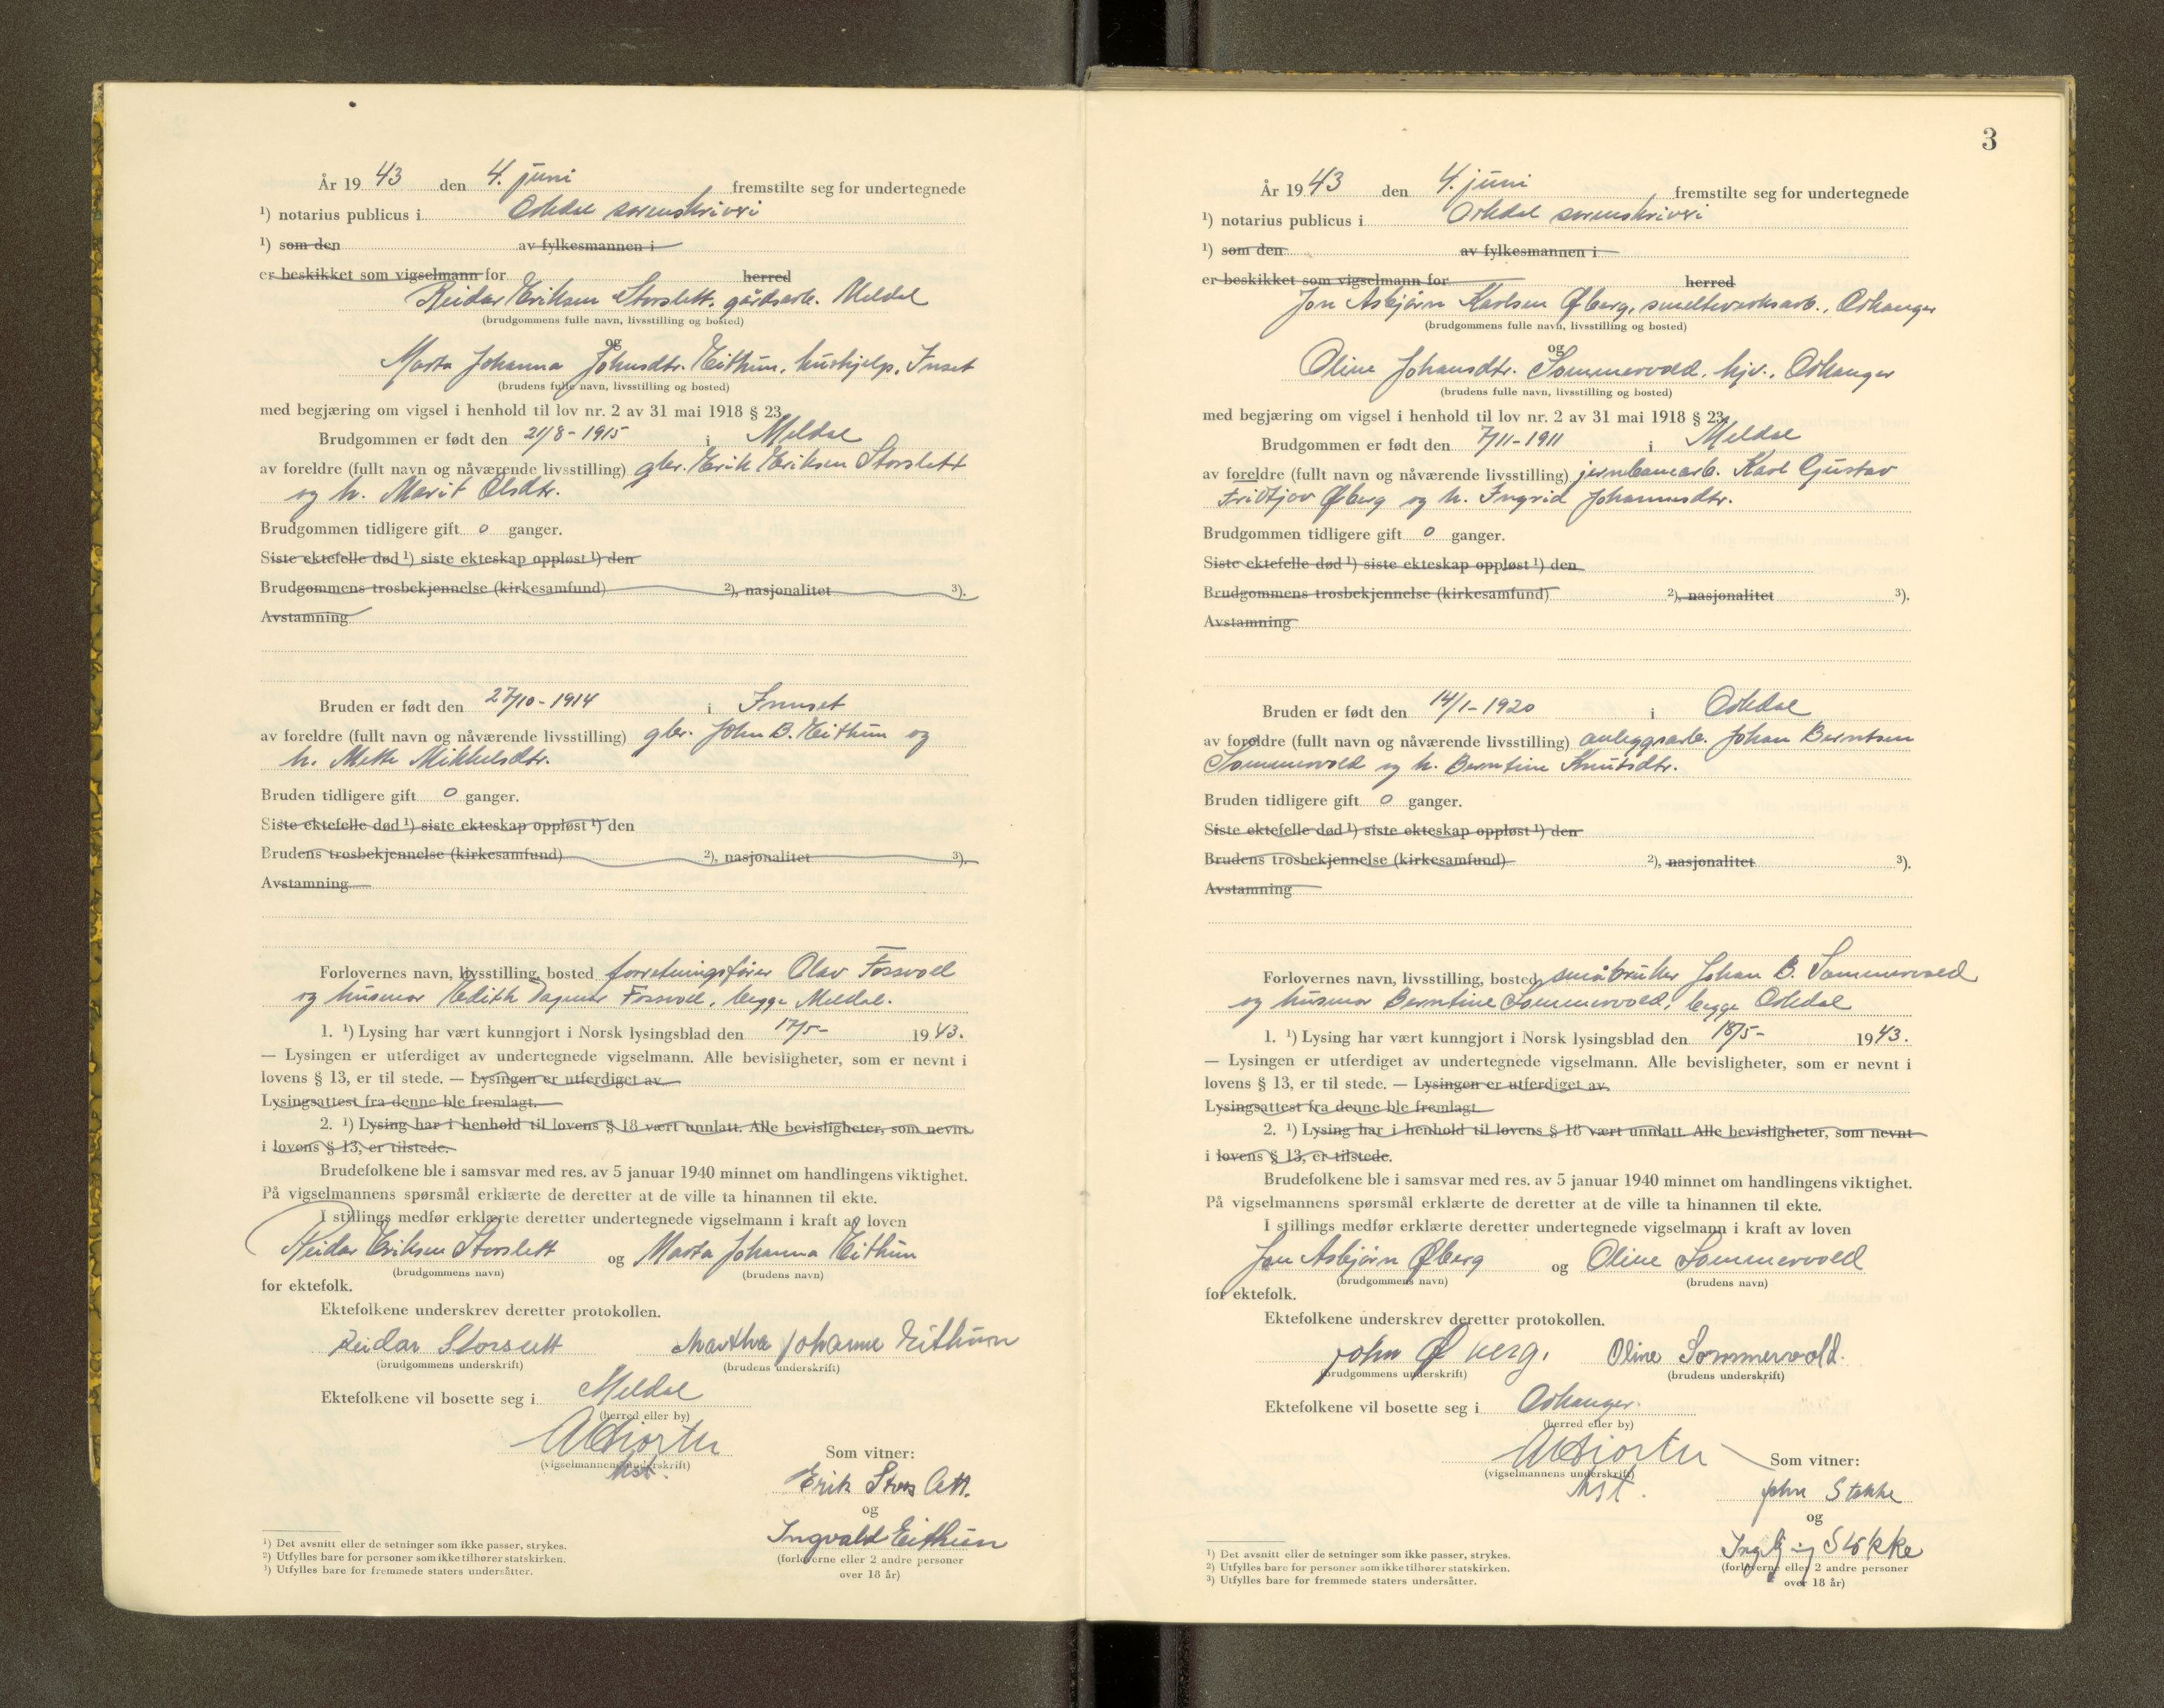 År 1943 den 4. juni fremstilte seg for undertegnede
¹) notarius publicus i Orkdal sorenskriveri
¹) som den av fylkesmannen i
er beskikket som vigselmann for herred
Reidar Eriksen Storslett, gårdsarb. Meldal
(brudgommens fulle navn, livsstilling og bosted)
og
Marta Johanna Johnsdtr. Eithun, hushjelp, Inset
(brudens fulle navn, livsstilling og bosted)
med begjæring om vigsel i henhold til lov nr. 2 av 31 mai 1918 § 23.
Brudgommen er født den 21/8-1915 i Meldal
av foreldre (fullt navn og nåværende livsstilling) gbr. Erik Eriksen Storslett
og h. Marit Olsdtr.
Brudgommen tidligere gift 0 ganger.
Siste ektefelle død ¹) siste ekteskap oppløst ¹) den
Brudgommens trosbekjennelse (kirkesamfund) ²), nasjonalitet ³).
Avstamning
Bruden er født den 27/10-1914 i Innset
av foreldre (fullt navn og nåværende livsstilling) gbr. John B. Eithun og
h. Mette Mikkelsdtr.
Bruden tidligere gift 0 ganger.
Siste ektefelle død ¹) siste ekteskap oppløst ¹) den
Brudens trosbekjennelse (kirkesamfund) ²), nasjonalitet ³).
Avstamning
Forlovernes navn, livsstilling, bosted forretningsfører Olav Fossvoll
og husmor Edith Dagmar Fossvoll, begge Meldal.
1. ¹) Lysing har vært kunngjort i Norsk lysingsblad den 17/5- 1943.
— Lysingen er utferdiget av undertegnede vigselmann. Alle bevisligheter, som er nevnt i
lovens § 13, er til stede. — Lysingen er utferdiget av
Lysingsattest fra denne ble fremlagt.
2. ¹) Lysing har i henhold til lovens § 18 vært unnlatt. Alle bevisligheter, som nevnt
i lovens § 13, er tilstede.
Brudefolkene ble i samsvar med res. av 5 januar 1940 minnet om handlingens viktighet.
På vigselmannens spørsmål erklærte de deretter at de ville ta hinannen til ekte.
I stillings medfør erklærte deretter undertegnede vigselmann i kraft av loven
Reidar Eriksen Storslett og Marta Johanna Eithun
(brudgommens navn) (brudens navn)
for ektefolk.
Ektefolkene underskrev deretter protokollen.
Reidar Storslett Martha Johanne Eithun
(brudgommens underskrift) (brudens underskrift)
Ektefolkene vil bosette seg i Meldal
(herred eller by)
(vigselmannens underskrift)
Som vitner:
Erik Storslett.
og
Ingvald Eithun
(forloverne eller 2 andre personer
over 18 år)
¹) Det avsnitt eller de setninger som ikke passer, strykes.
²) Utfylles bare for personer som ikke tilhører statskirken.
³) Utfylles bare for fremmede staters undersåtter.
3
År 1943 den 4. juni fremstilte seg for undertegnede
¹) notarius publicus i Orkdal sorenskriveri
¹) som den av fylkesmannen i
er beskikket som vigselmann for herred
Jon Asbjørn Karlsen Øberg, smelteverksarb., Orkanger
(brudgommens fulle navn, livsstilling og bosted)
og
Oline Johansdtr. Sommervold, hjv., Orkanger
(brudens fulle navn, livsstilling og bosted)
med begjæring om vigsel i henhold til lov nr. 2 av 31 mai 1918 § 23.
Brudgommen er født den 7/11-1911 i Meldal
av foreldre (fullt navn og nåværende livsstilling) jernbanearb. Karl Gustav
Fridtjov Øberg og h. Ingrid Johannesdtr.
Brudgommen tidligere gift 0 ganger.
Siste ektefelle død ¹) siste ekteskap oppløst ¹) den
Brudgommens trosbekjennelse (kirkesamfund) ²), nasjonalitet ³).
Avstamning
Bruden er født den 14/1-1920 i Orkdal
av foreldre (fullt navn og nåværende livsstilling) anleggsarb. Johan Berntsen
Sommervold og h. Berntine Knutsdtr.
Bruden tidligere gift 0 ganger.
Siste ektefelle død ¹) siste ekteskap oppløst ¹) den
Brudens trosbekjennelse (kirkesamfund) ²), nasjonalitet ³).
Avstamning
Forlovernes navn, livsstilling, bosted småbruker Johan B. Sommervold
og husmor Berntine Sommervold, begge Orkdal
1. ¹) Lysing har vært kunngjort i Norsk lysingsblad den 18/5- 1943.
— Lysingen er utferdiget av undertegnede vigselmann. Alle bevisligheter, som er nevnt i
lovens § 13, er til stede. — Lysingen er utferdiget av
Lysingsattest fra denne ble fremlagt
2. ¹) Lysing har i henhold til lovens § 18 vært unnlatt Alle bevisligheter, som nevnt
i lovens § 13, er tilstede.
Brudefolkene ble i samsvar med res. av 5 januar 1940 minnet om handlingens viktighet.
På vigselmannens spørsmål erklærte de deretter at de ville ta hinannen til ekte.
I stillings medfør erklærte deretter undertegnede vigselmann i kraft av loven
Jon Asbjørn Øberg og Oline Sommervold
(brudgommens navn) (brudens navn)
for ektefolk.
Ektefolkene underskrev deretter protokollen.
John Øberg. Oline Sommervold.
(brudgommens underskrift) (brudens underskrift)
Ektefolkene vil bosette seg i Orkanger.
(herred eller by)
(vigselmannens underskrift)
Som vitner:
John Stokke
og
Stokke
(forloverne eller 2 andre personer
over 18 år)
¹) Det avsnitt eller de setninger som ikke passer, strykes.
²) Utfylles bare for personer som ikke tilhører statskirken.
³) Utfylles bare for fremmede staters undersåtter.